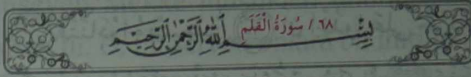 ٦٨ / سُورَةُ الْقَلَمِ
بِسْمِ اللَّهِ الرَّحْمَٰنِ الرَّحِيمِ